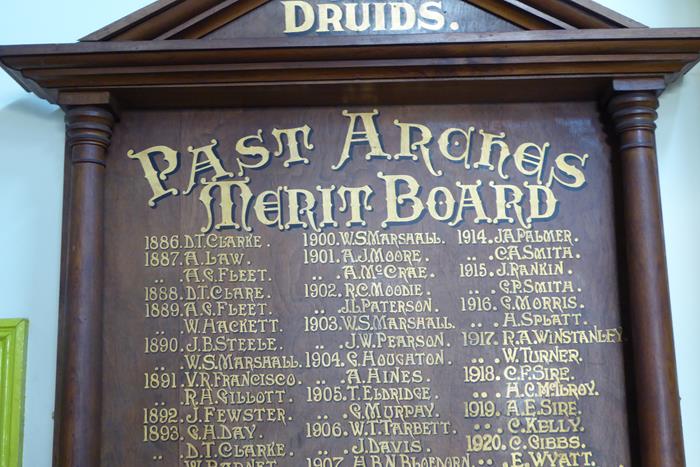 DRUIDS.
PAST ARCHES
MERIT BOARD
1886. D.T. CLARKE.
1887. A. LAW.
.. A.G. FLEET.
1888. D.T. CLARE.
1889. A.G. FLEET.
.. W. HACKETT.
1890. J.B. STEELE.
.. W.S. MARSHALL.
1891. V.R. FRANCISCO.
.. R.H. GILLOTT.
1892. J. FEWSTER.
1893. G.H. DAY.
.. D.T. CLARKE.
1900. W.S. MARSHALL.
1901. A.J. MOORE.
.. A. McCRAE.
1902. R.C. MOODIE.
.. J.L. PATERSON.
1903. W.S. MARSHALL.
.. J.W. PEARSON.
1904. G. HOUGHTON.
.. A. HINES.
1905. T. ELDRIDGE.
.. G. MURPAY.
1906. W.T. TARBETT.
.. J. DAVIS.
1907. H.B.N. BLOEDORN.
1914. J.A. PALMER.
.. C.A. SMITA.
1915. J. RANKIN.
.. G.P. SMITA.
1916. G. MORRIS.
.. A. SPLATT.
1917. R.A. WINSTANLEY.
.. W. TURNER.
1918. C.F. SIRE.
.. H.C. McILROY.
1919. A.E. SIRE.
.. C. KELLY.
1920. C. GIBBS.
.. E. WYATT.